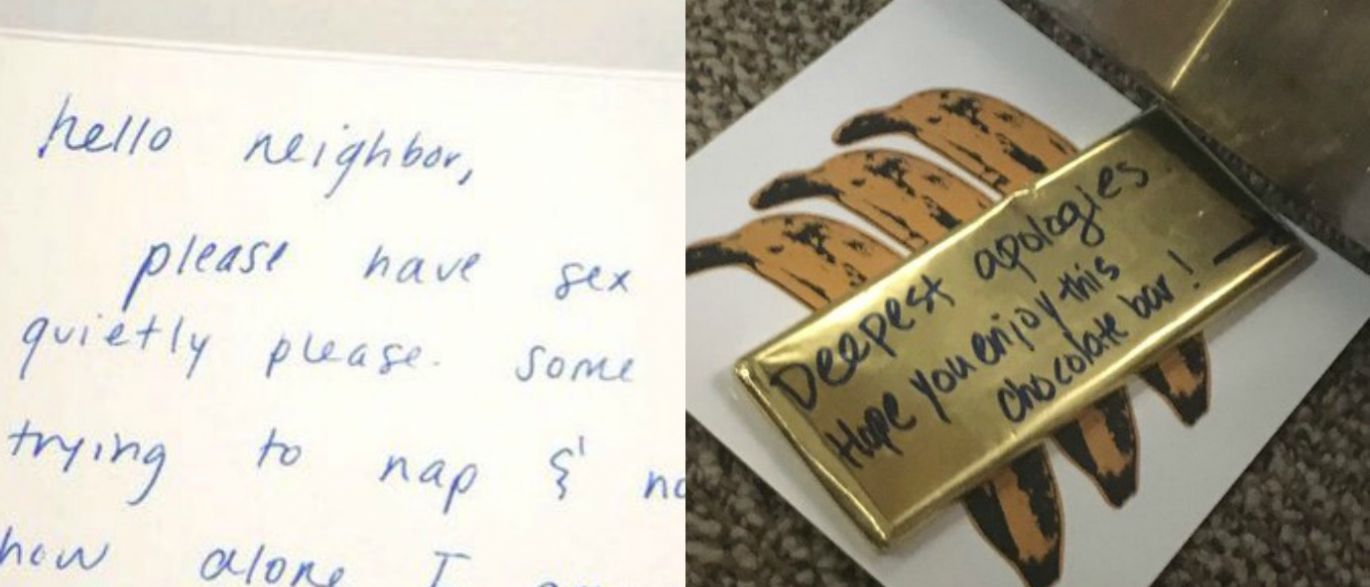 hello neighbor,
please have sex
quietly please. Some
trying to nap &
how alone I
Deepest apologies
Hope you enjoy this
chocolate bar!